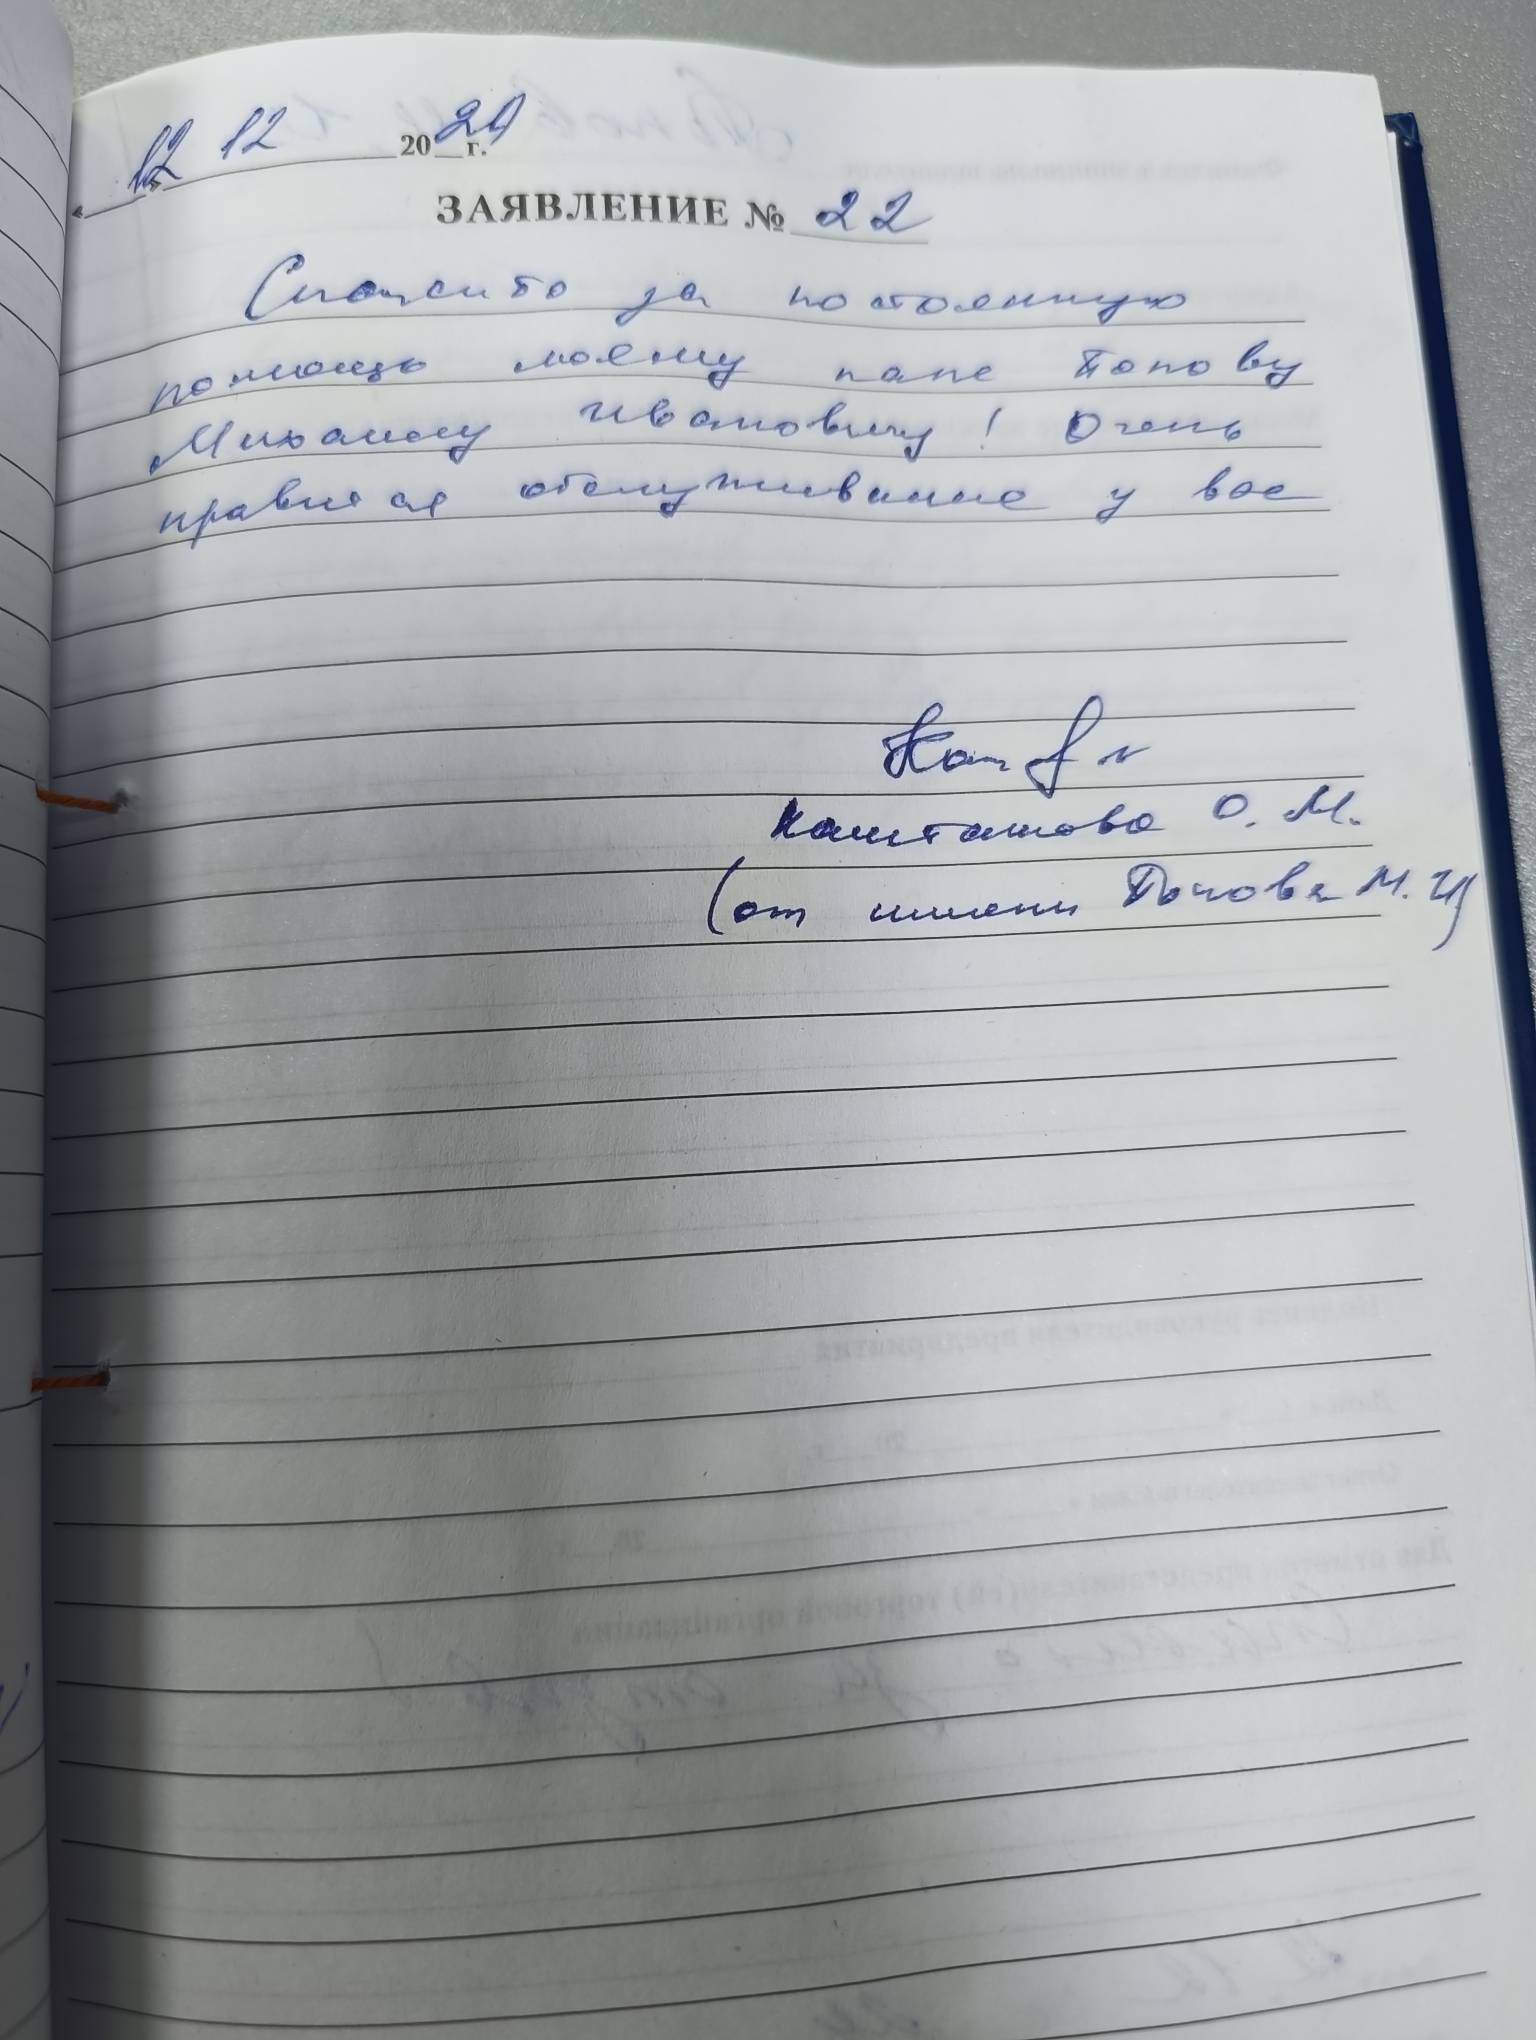 « 12 » 12 2024 г.
ЗАЯВЛЕНИЕ № 22
Спасибо за постоянную
помощь моему папе Попову
Михаилу Ивановичу! Очень
нравится обслуживание у вас
Каштанова О. М.
(от имени Попова М. И)